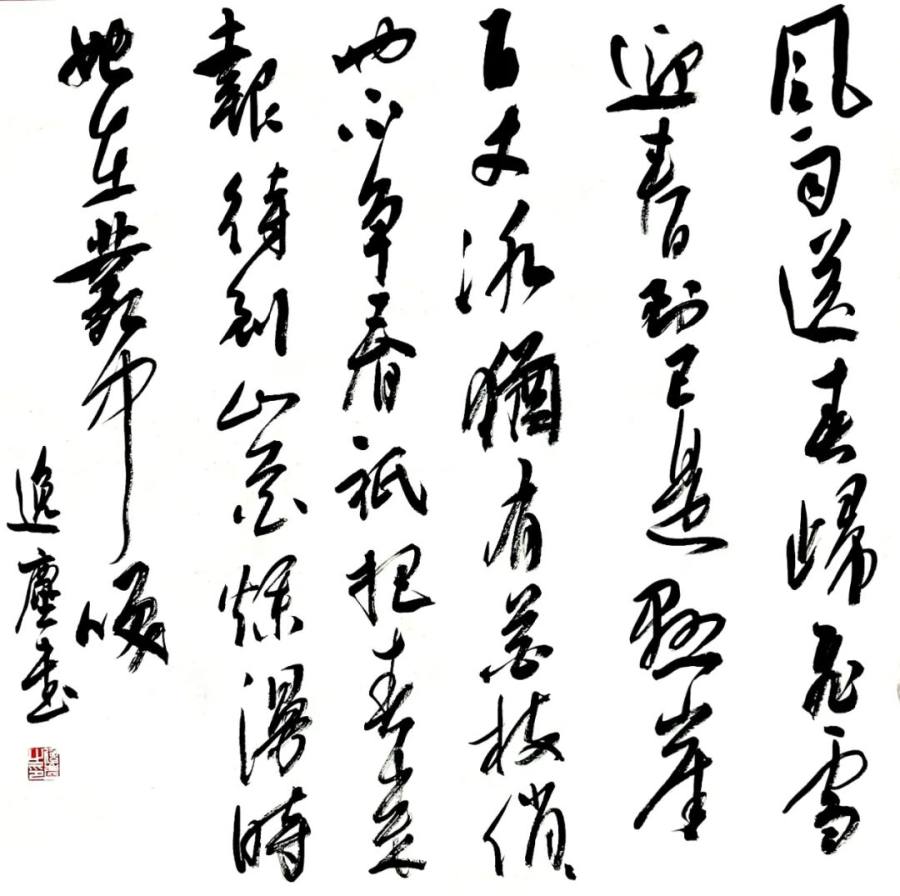 風雨送春歸飛雪
迎春到已是懸崖
百丈冰猶有花枝俏、
也不爭春祇把春來
報待到山花爛漫時
她在叢中咲
逸塵書